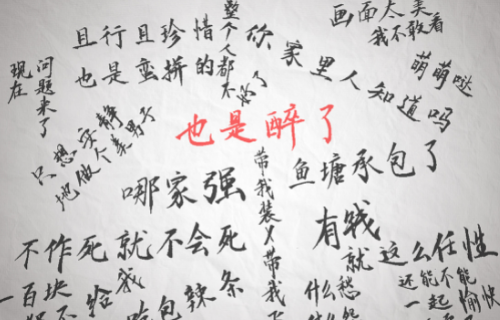 画面太美
我不敢看
整个人都不好了
且行且珍惜
也是蛮拼的
你家里人知道吗
萌萌哒
现在问题来了
只想安静
地做个美男子
也是醉了
哪家强
带我装X带我
鱼塘承包了
有钱
就这么任性
不作死就不会死
一百块
给我
吃包辣条
什么愁
什么怨
还能不能
一起愉快